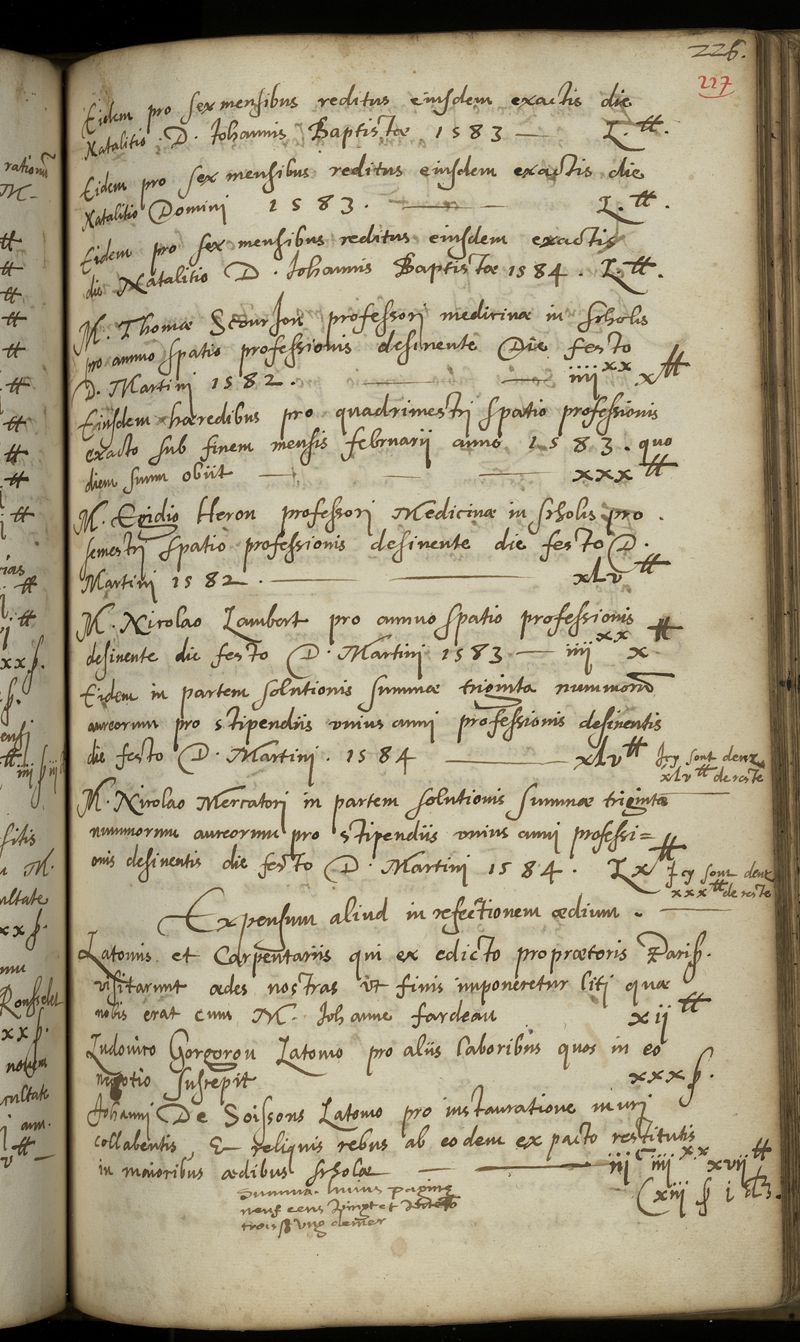 226.
227
Eidem pro sex mensibus reditus eiusdem exactis die
Natalitio D. Iohannis Baptistæ 1583 — L. ₶.
Eidem pro sex mensibus reditus eiusdem exactis die
Natalitio Domini 1583. — L. ₶.
Eidem pro sex mensibus reditus eiusdem exactis
die Natalitio D. Iohannis Baptistæ 1584. L. ₶.
M. Thomæ professori medicinæ in scholis
pro annuo spatio professionis desinente Die festo
D. Martini 1582. — iiij xx x ₶
Eiusdem hæredibus pro quadrimestri spatio professionis
exacto sub finem mensis februarii anno 1583. quo
diem suum obiit — xxx ₶
M. Egidio Heron professori Medicinæ in scholis pro
semestri spatio professionis desinente die festo D.
Martini 1582. — xlv ₶
M. Nicolao Lambert pro annuo spatio professionis
desinente die festo D. Martini 1583 — iiij xx x ₶
Eidem in partem solutionis summæ triginta nummorū
aureorum pro stipendiis unius anni professionis desinentis
die festo D. Martini. 1584 — xlv ₶ Icy sont deuz
xlv ₶ de reste
M. Nicolao Mercatori in partem solutionis summæ triginta
nummorum aureorum pro stipendiis unius anni professi=
onis desinentis die festo D. Martini 1584. Lx ₶ Icy sont deuz
xxx ₶ de reste
Expensum aliud in refectionem ædium.
Latomis et Carpentariis qui ex edicto proprætoris Paris.
visitarunt ædes nostras ut finis imponeretur liti quæ
nobis erat cum M. Iohanne fardeau xij ₶
Ludovico Gorgorou Latomo pro aliis laboribus quos in eo
negotio suscepit xxx ß.
Iohanni De Soissons Latomo pro instauratione muri
collabentis, & reliquis rebus ab eodem ex pacto restitutis
in maioribus ædibus scholæ — iij C iiij xx xvij ₶
(xiij ß i d.
Summa huius paginæ
neuf cens vingt et
trois ß ung denier